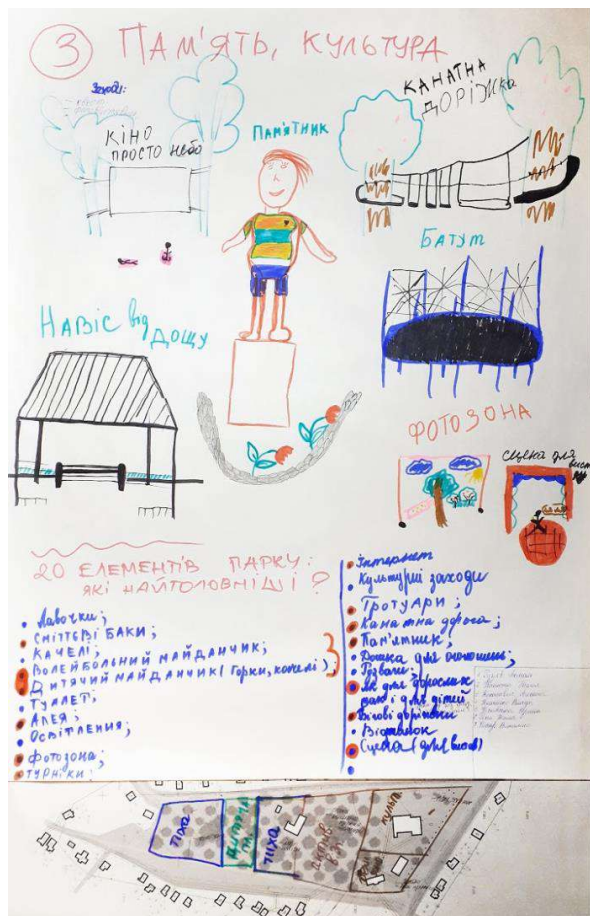 3 ПАМ'ЯТЬ, КУЛЬТУРА
Заходи:
КІНО
ПРОСТО НЕБО
ПАМ'ЯТНИК
КАНАТНА
ДОРІЖКА
БАТУТ
НАВІС від
ДОЩУ
ФОТОЗОНА
сцена для
вист
20 ЕЛЕМЕНТІВ ПАРКУ:
ЯКІ НАЙГОЛОВНІШІ?
Лавочки;
СМІТТЄВІ БАКИ;
КАЧЕЛІ;
ВОЛЕЙБОЛЬНИЙ МАЙДАНЧИК;
ДИТЯЧИЙ МАЙДАНЧИК (Горки, качелі);
ТУАЛЕТ;
АЛЕЯ;
ОСВІТЛЕННЯ;
ФОТОЗОНА;
ТУРНІКИ;
Інтернет
Культурні заходи
Тротуари;
Канатна дорога;
Пам'ятник;
Дошка для оголошень;
Розваги:
Як для дорослих
так і для дітей
Бігові доріжки
Відпочинок
Сцена (для вистав)
ТИХА
ТИХА